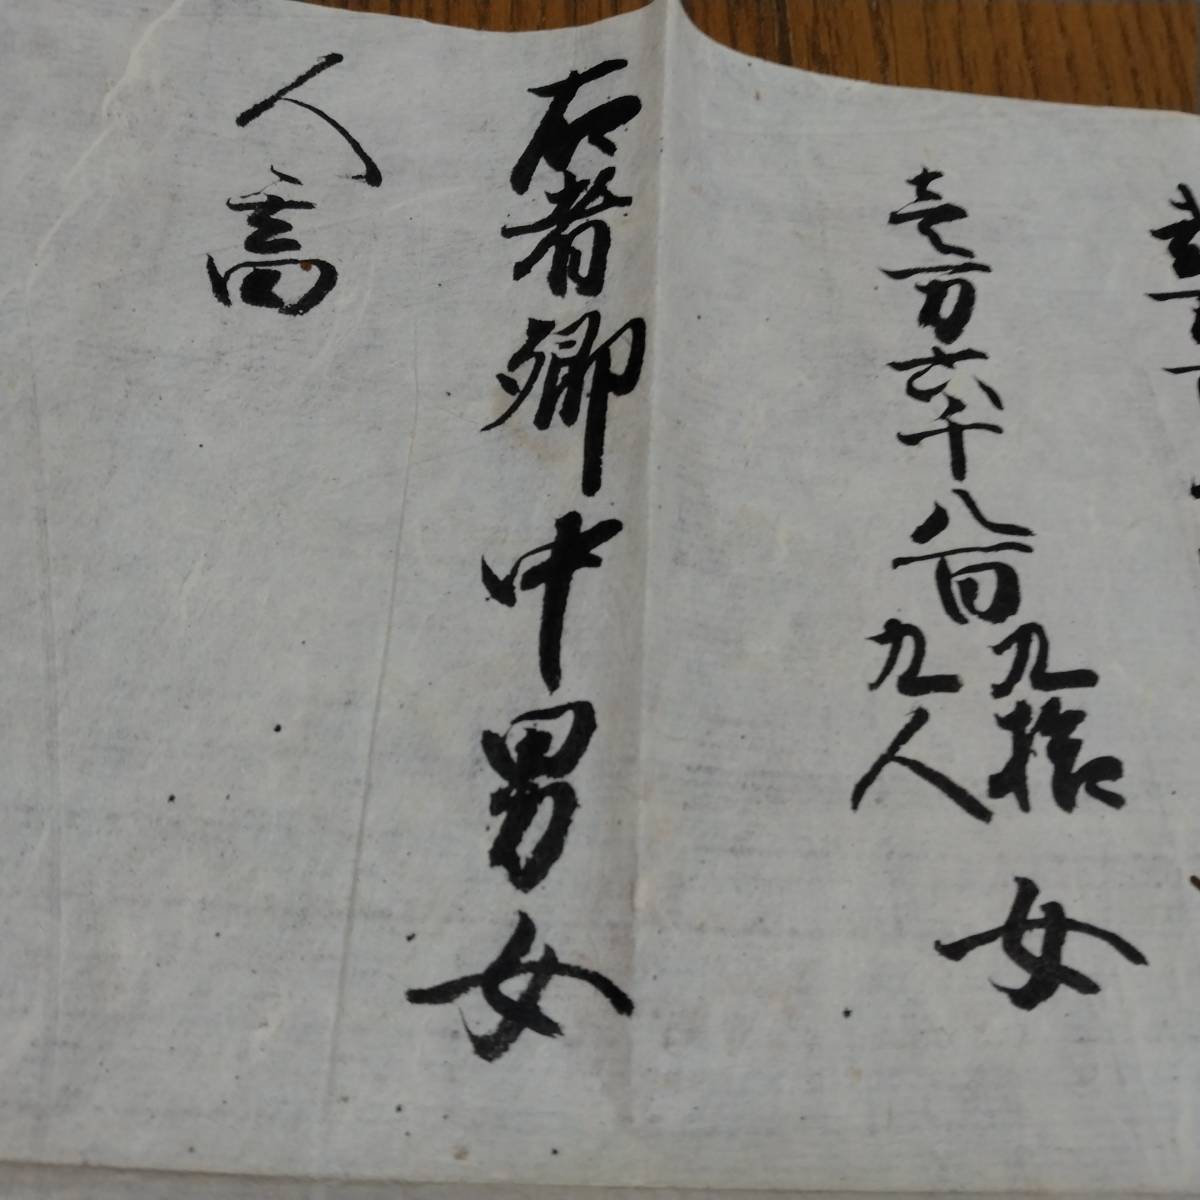 壱万六千八百九拾九人 女
右者郷中男女
人高